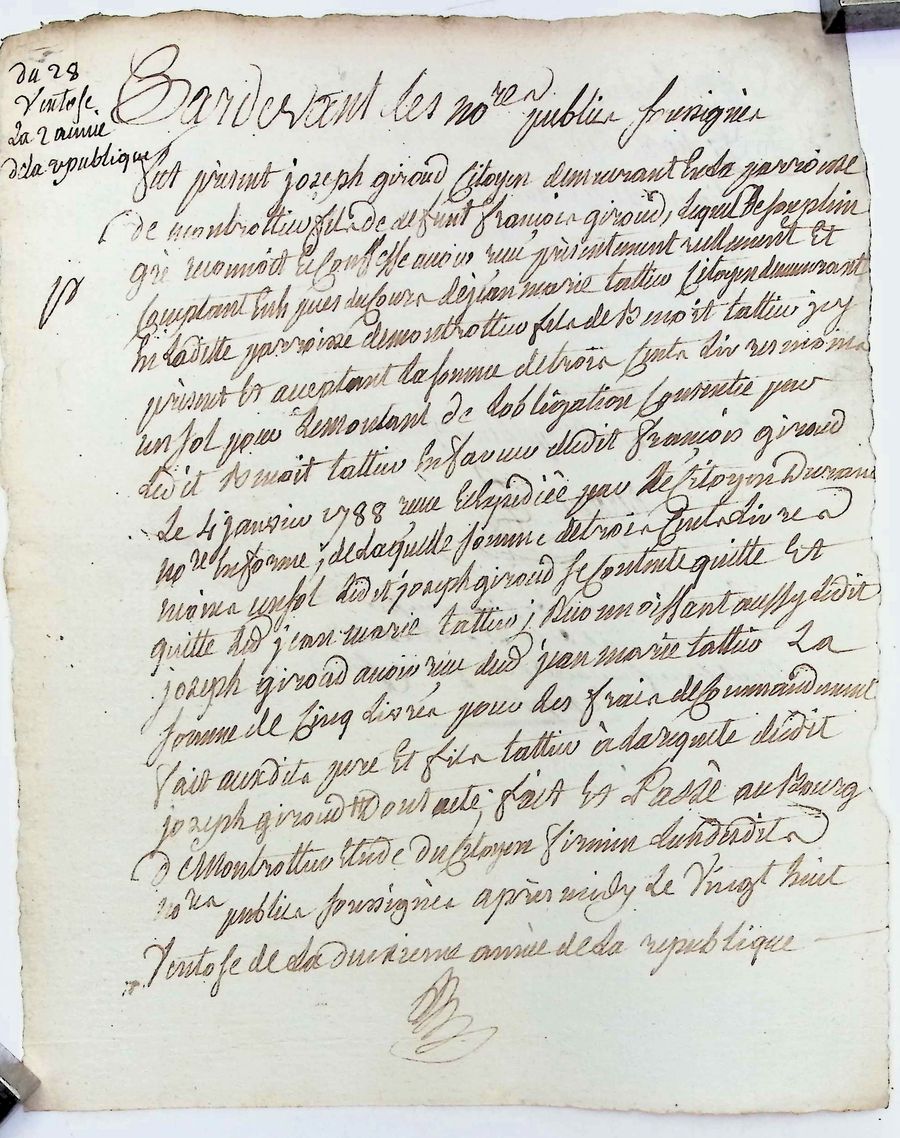 du 28
Ventose
La 2 année
de la republique
Pardevant les nores publics soussignés
fut présent joseph giroud Citoyen demeurant En la parroisse
de montrottier fils de deffunt françois giroud, lequel de son plein
gré reconnoit Et Confesse avoir reçu présentement réellement Et
Comptant de jean marie tattier Citoyen demeurant
En Ladette parroisse de montrottier fils de Benoit tattier jcy
présent Et acceptant la somme de trois Cents Livres moins
un sol pour Le montant de Lobligation Consentie par
Ledit Benoit tattier En faveur dudit françois giroud
Le 4 janvier 1788 reçue Et Expédiée par Le Citoyen
nore En forme ; de Laquelle somme de trois Cents Livres
moins un sol Ledit joseph giroud se Contente quitte Et
quitte Led jean marie tattier ; Reconnoissant aussy Ledit
joseph giroud avoir reçu dud jean marie tattier La
somme de Cinq Livres pour Les frais de Commandement
fait auxdits pere Et fils tattier à La requete dudit
joseph giroud Dont acte ; fait Et Passé au Bourg
de Montrottier Etude du Citoyen firmin Lun desdits
nores publics soussignés après midy Le Vingt huit
Ventose de La deuxieme année de La republique